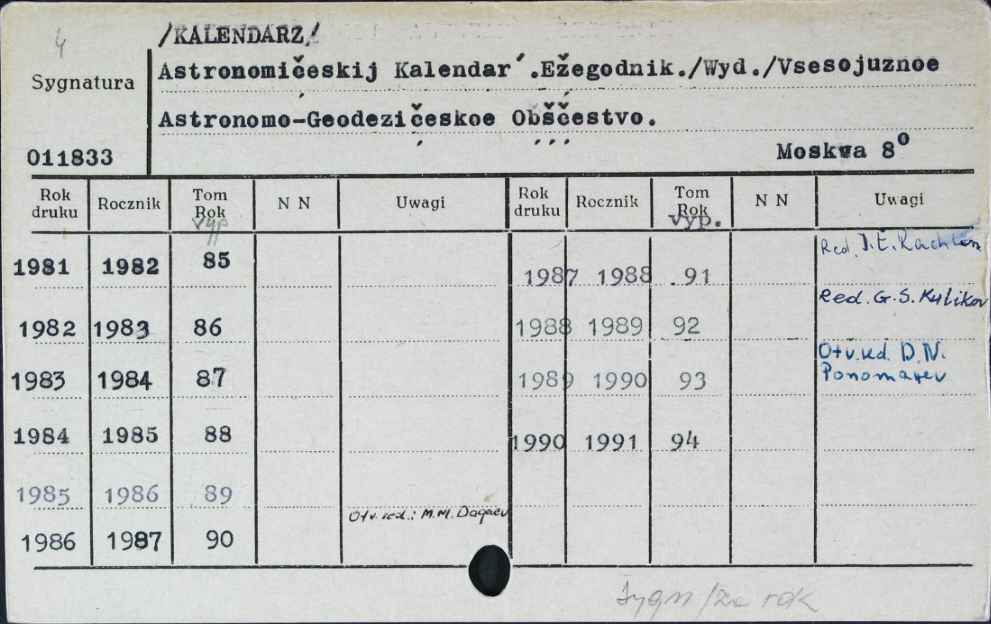 4
/KALENDARZ/
Sygnatura
Astronomičeskij Kalendar´.Ežegodnik./Wyd./Vsesojuznoe
Astronomo-Geodezičeskoe Obščestvo.
011833
Moskwa 8⁰
Rok druku Rocznik Tom Rok vyp N N Uwagi Rok druku Rocznik Tom Rok vyp. N N Uwagi
1981 1982 85 1987 1988 .91 Red. I.E. Rachlin
1982 1983 86 1988 1989 92 Red. G.S. Kulikov
1983 1984 87 1989 1990 93 Otv.red. D.N. Ponomarev
1984 1985 88 1990 1991 94
1985 1986 89
1986 1987 90 Otv.red.: M.M. Dagaev
sygn /za rok